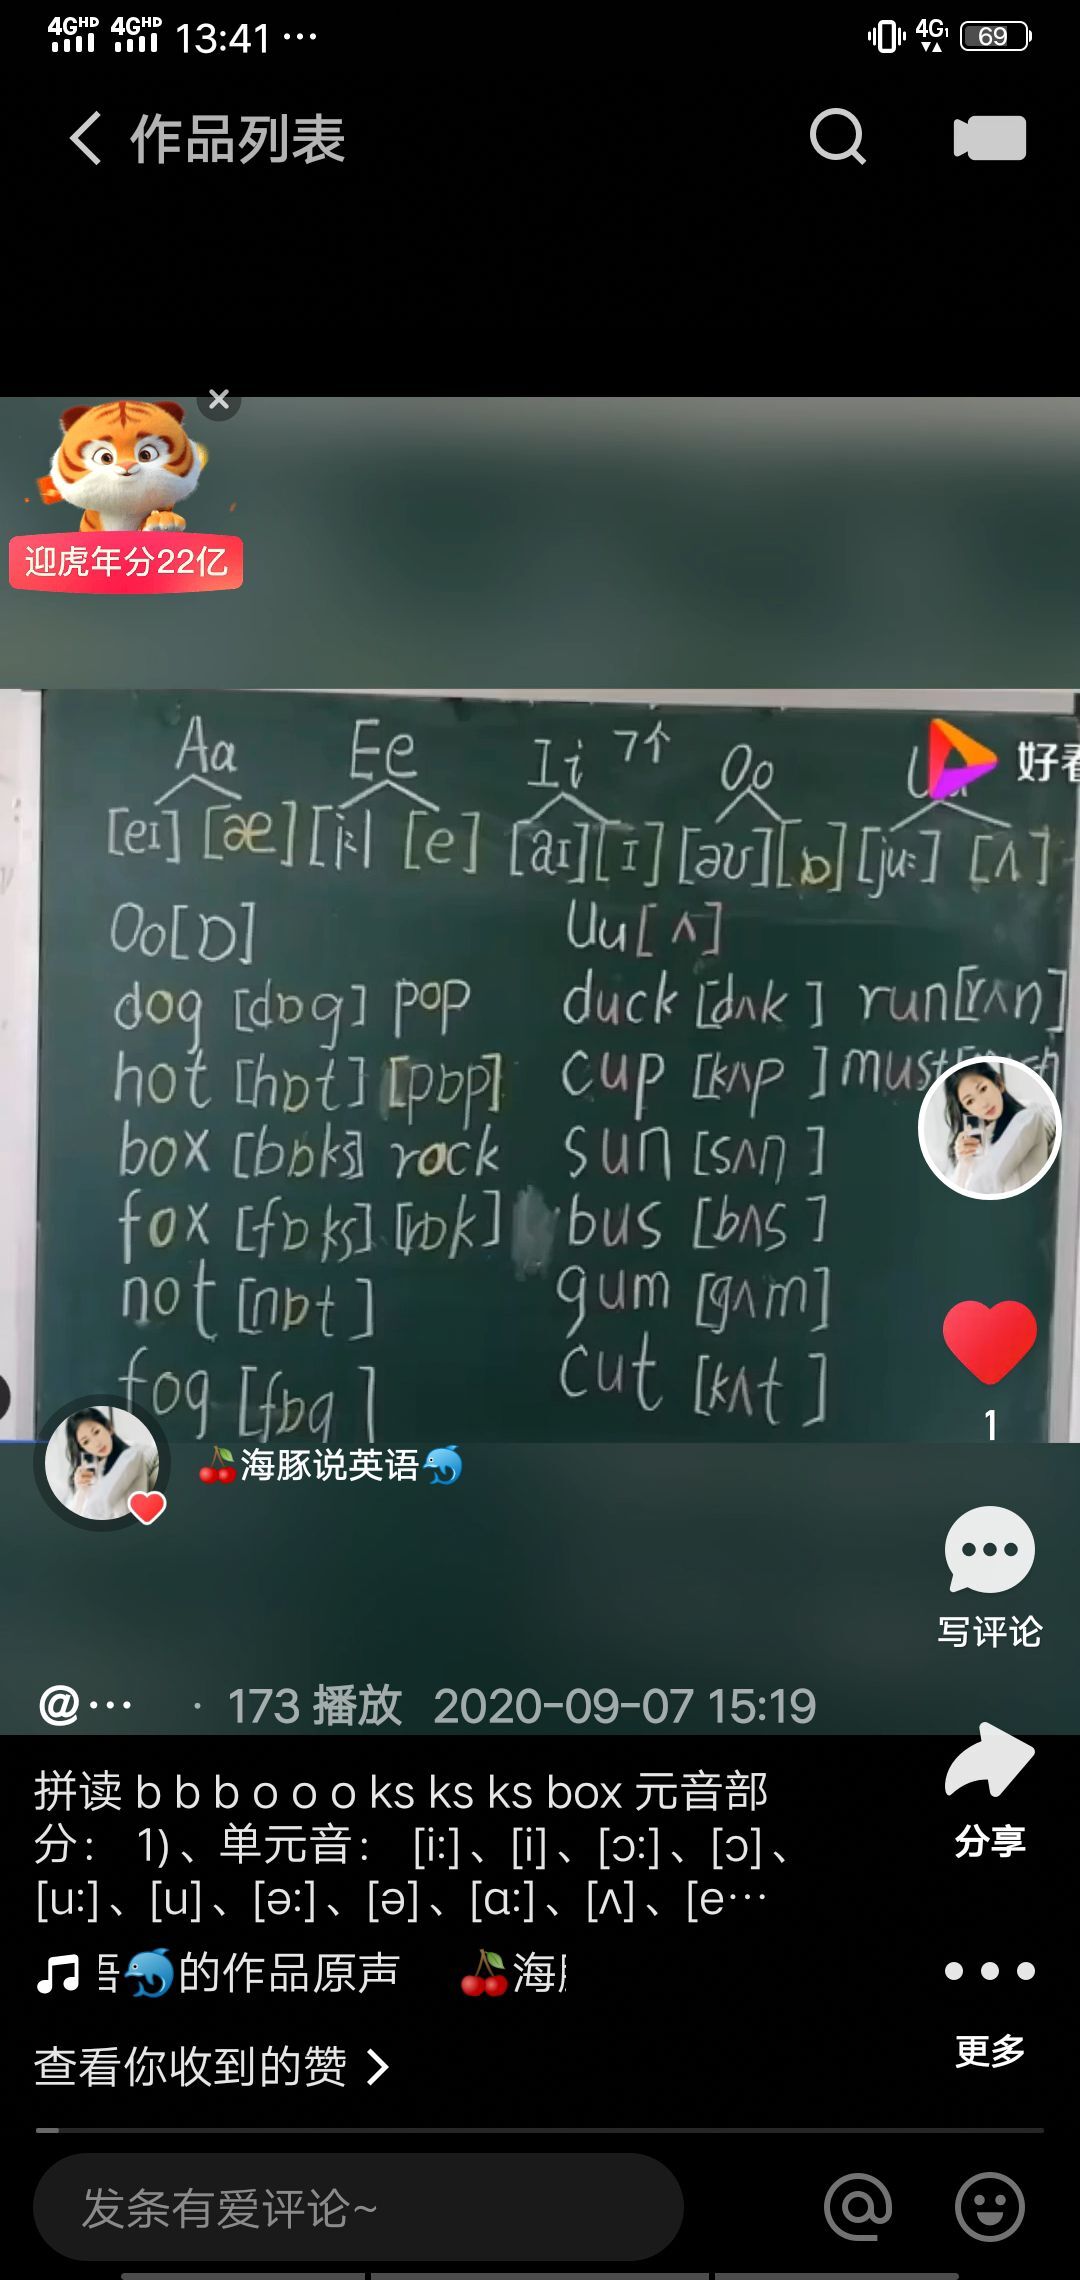 4GHD 4GHD 13:41 ··· 4G 69
作品列表
迎虎年分22亿
Aa Ee Ii 7个 Oo
好看
[eɪ] [æ] [i:] [e] [aɪ] [ɪ] [əʊ] [ɒ] [ju:] [ʌ]
Oo[ɒ] Uu[ʌ]
dog [dɒg] pop duck [dʌk] run[rʌn]
hot [hɒt] [pɒp] cup [kʌp] must
box [bɒks] rock sun [sʌn]
fox [fɒks] [rɒk] bus [bʌs]
not [nɒt] gum [gʌm]
fog [fɒg] cut [kʌt]
1
🍒海豚说英语🐬
写评论
@··· · 173 播放 2020-09-07 15:19
拼读 b b b o o o ks ks ks box 元音部
分： 1)、单元音： [i:]、[i]、[ɔ:]、[ɔ]、
[u:]、[u]、[ə:]、[ə]、[ɑ:]、[ʌ]、[e···
分享
🐬的作品原声 🍒海
更多
查看你收到的赞 >
发条有爱评论~